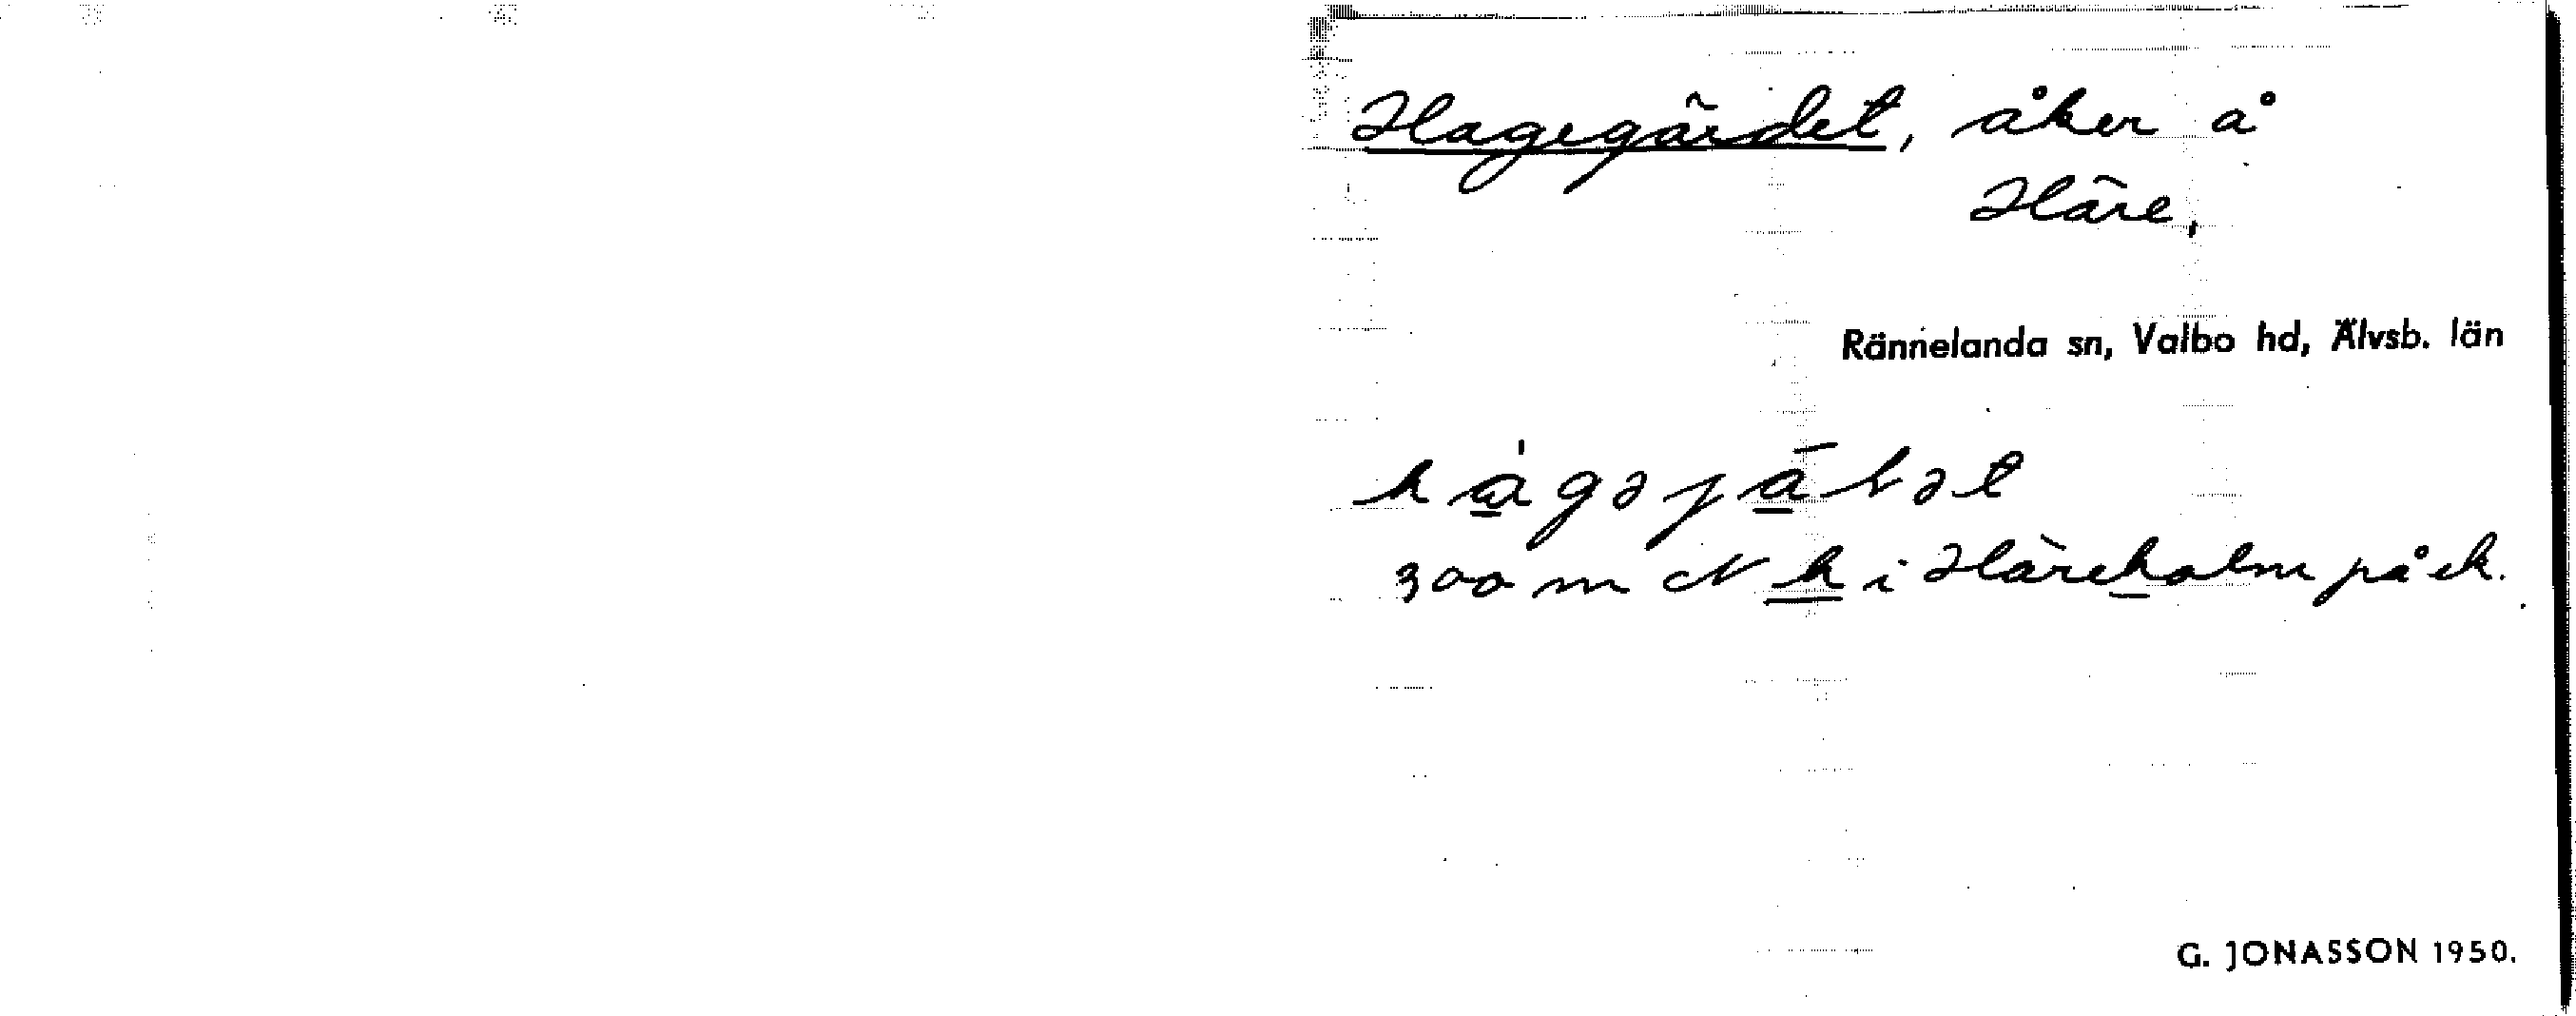 Hagegärdet, åker å
Häre,
Rännelanda sn, Valbo hd, Älvsb. län
300 m N h i Häreholm på ek.
G. JONASSON 1950.